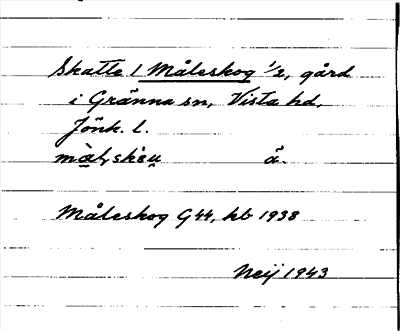 Skatte 1 Måleskog 1/2, gård
i Gränna sn, Vista hd,
Jönk. l.
å.
Måleskog G44, kb 1938
Neij 1943